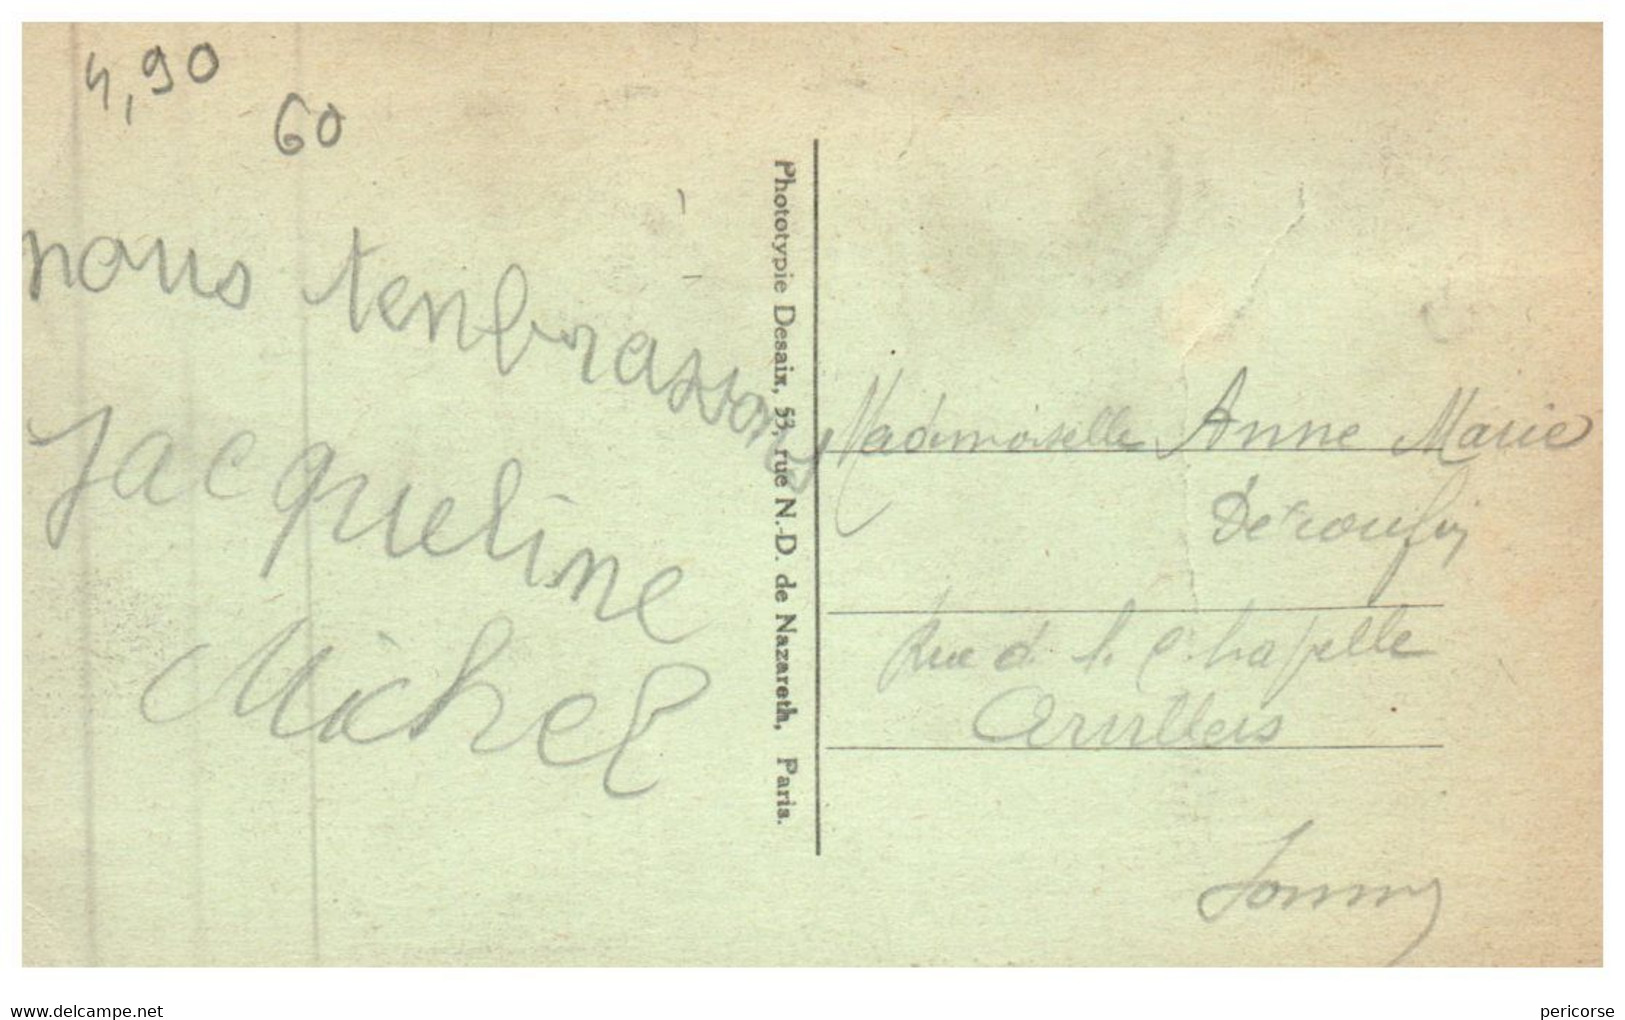 4,90
60
nous tenbrassons
Jacqueline
Michel
Phototypie Desaix, 53, rue N.-D. de Nazareth, Paris.
Mademoiselle Anne Marie
Rue d. l. Chapelle
Arvillers
Somme
www.delcampe.net
pericorse